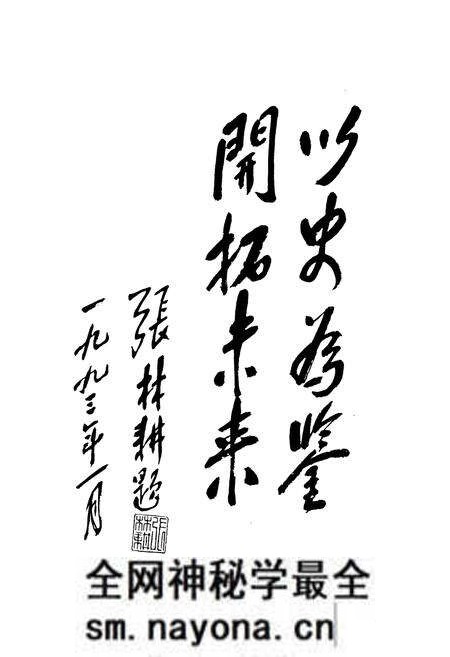 以史为鉴
開拓未来
張林耕题
一九九三年一月
全网神秘学最全
sm.nayona.cn